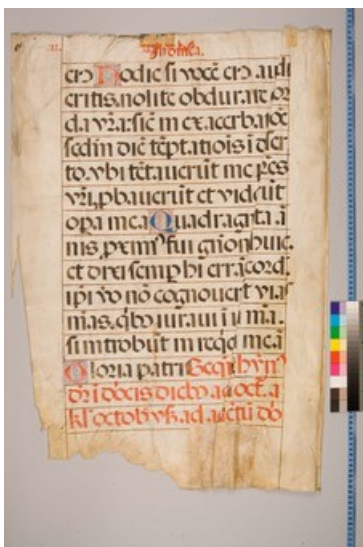 In dnīca.
eiꝰ Hodie si vocē eiꝰ audi
eritis, nolite obdurare cor
da vr̄a: sic̄ in exacerbatiōe
sed̄m diē tēptatiōis ī deser
to. vbi tētaueꝛūt me pr̄es
vr̄i, ꝓbauerūt et viderūt
oꝑa mea Quadragīta ā
nis, ꝓxim⁹ fui gn̄ationi huic.
et dixi semꝑ hi errāt cord̄.
ipi v̄o nō cognouerūt vias
meas, qͥbꝫ iuraui ī ira m̄a.
si introibūt in req̄ē meā
Gloria patri Seq̄ hȳn⁹
dr̄ ī dn̄icis diebꝫ a oct̄. a
kl̓ octobꝶ vsqꝫ ad aduētū dn̄i